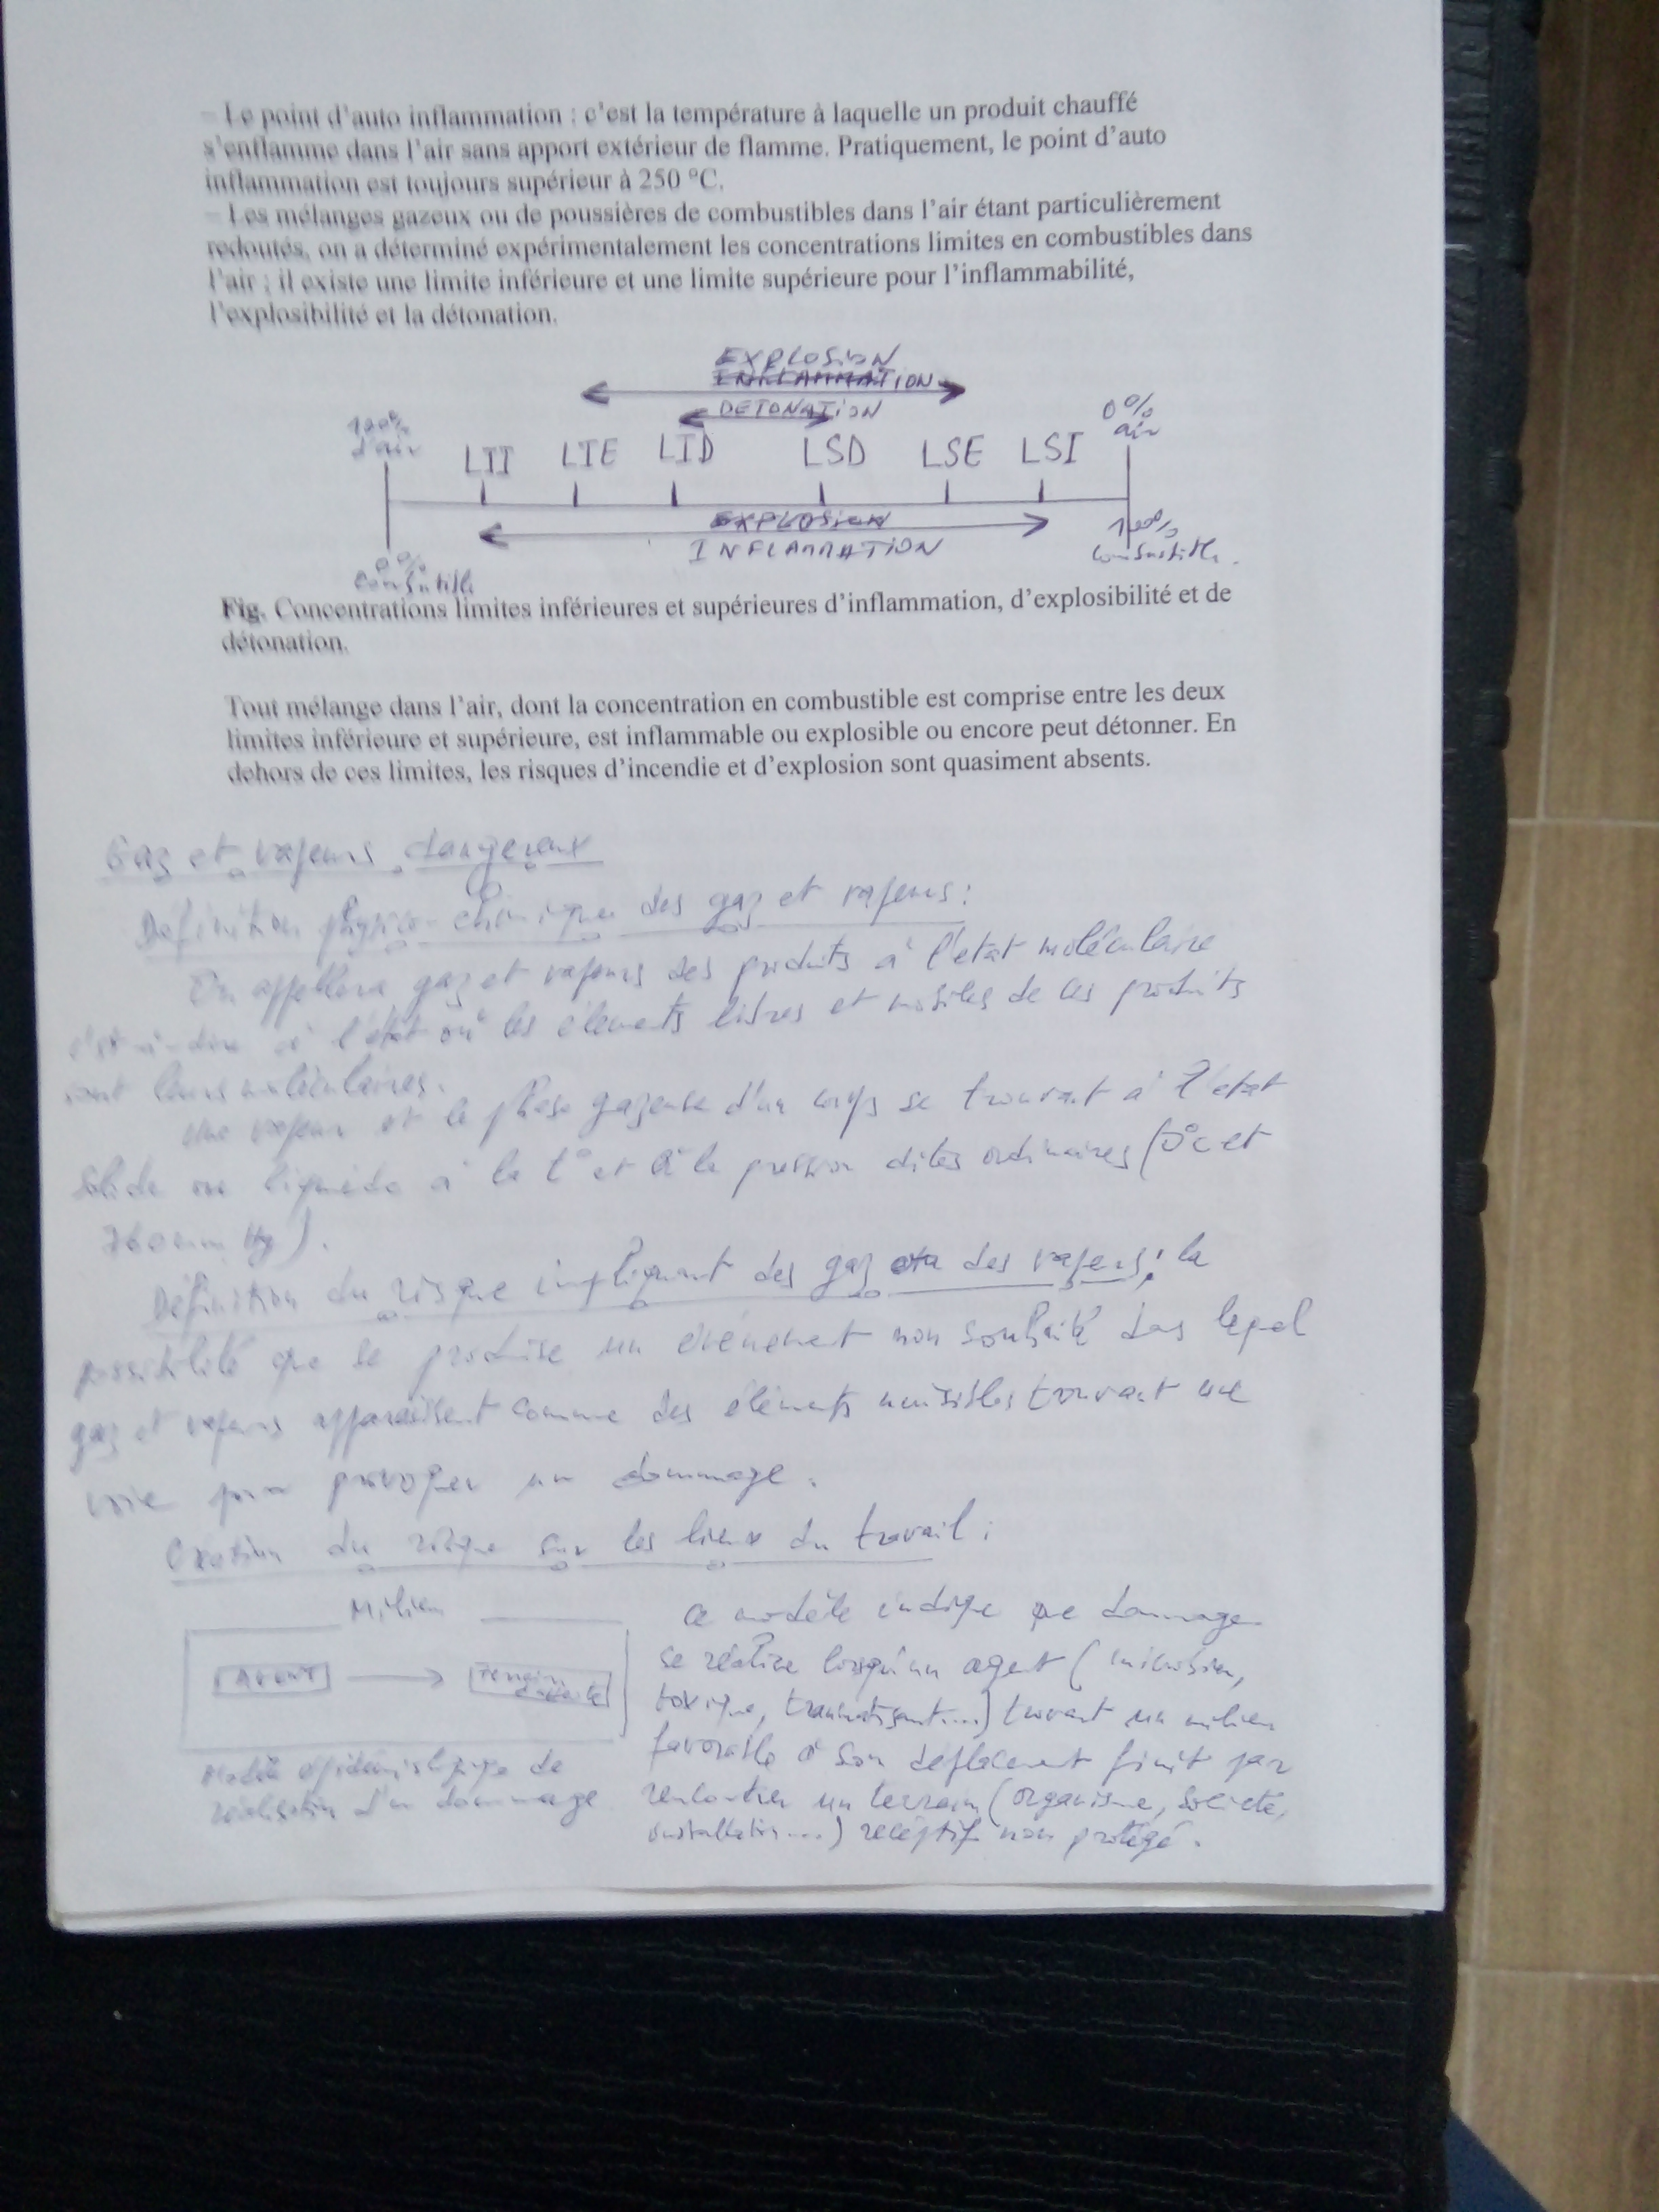 - Le point d'auto inflammation : c'est la température à laquelle un produit chauffé
s'enflamme dans l'air sans apport extérieur de flamme. Pratiquement, le point d'auto
inflammation est toujours supérieur à 250 °C.
- Les mélanges gazeux ou de poussières de combustibles dans l'air étant particulièrement
redoutés, on a déterminé expérimentalement les concentrations limites en combustibles dans
l'air ; il existe une limite inférieure et une limite supérieure pour l'inflammabilité,
l'explosibilité et la détonation.
EXPLOSION
INFLAMMATION
DETONATION
100%
d'air
0%
air
LII LIE LID LSD LSE LSI
EXPLOSION
INFLAMMATION
0%
combustible
100%
combustible.
Fig. Concentrations limites inférieures et supérieures d'inflammation, d'explosibilité et de
détonation.
Tout mélange dans l'air, dont la concentration en combustible est comprise entre les deux
limites inférieure et supérieure, est inflammable ou explosible ou encore peut détonner. En
dehors de ces limites, les risques d'incendie et d'explosion sont quasiment absents.
Gaz et vapeurs dangereux
Définition physico-chimique des gaz et vapeurs :
On appellera gaz et vapeurs des produits à l'état moléculaire
c'est-à-dire à l'état où les éléments libres et mobiles de ces produits
sont leurs moléculaires.
Une vapeur est la phase gazeuse d'un corps se trouvant à l'état
solide ou liquide à la t° et à la pression dites ordinaires (0°c et
760 mm Hg).
Définition du risque impliquant des gaz ou des vapeurs : la
possibilité que se produise un évènement non souhaité dans lequel
gaz et vapeurs apparaissent comme des éléments nuisibles trouvant une
voie pour provoquer un dommage.
Création du risque sur les lieux du travail :
Milieu
AGENT
Terrain
Modèle épidémiologique de
réalisation d'un dommage
ce modèle indique que dommage
se réalise lorsqu'un agent (microbien,
toxique, traumatisant...) trouvant un milieu
favorable à son déplacement finit par
rencontrer un terrain (organisme, société,
installation...) réceptif non protégé.